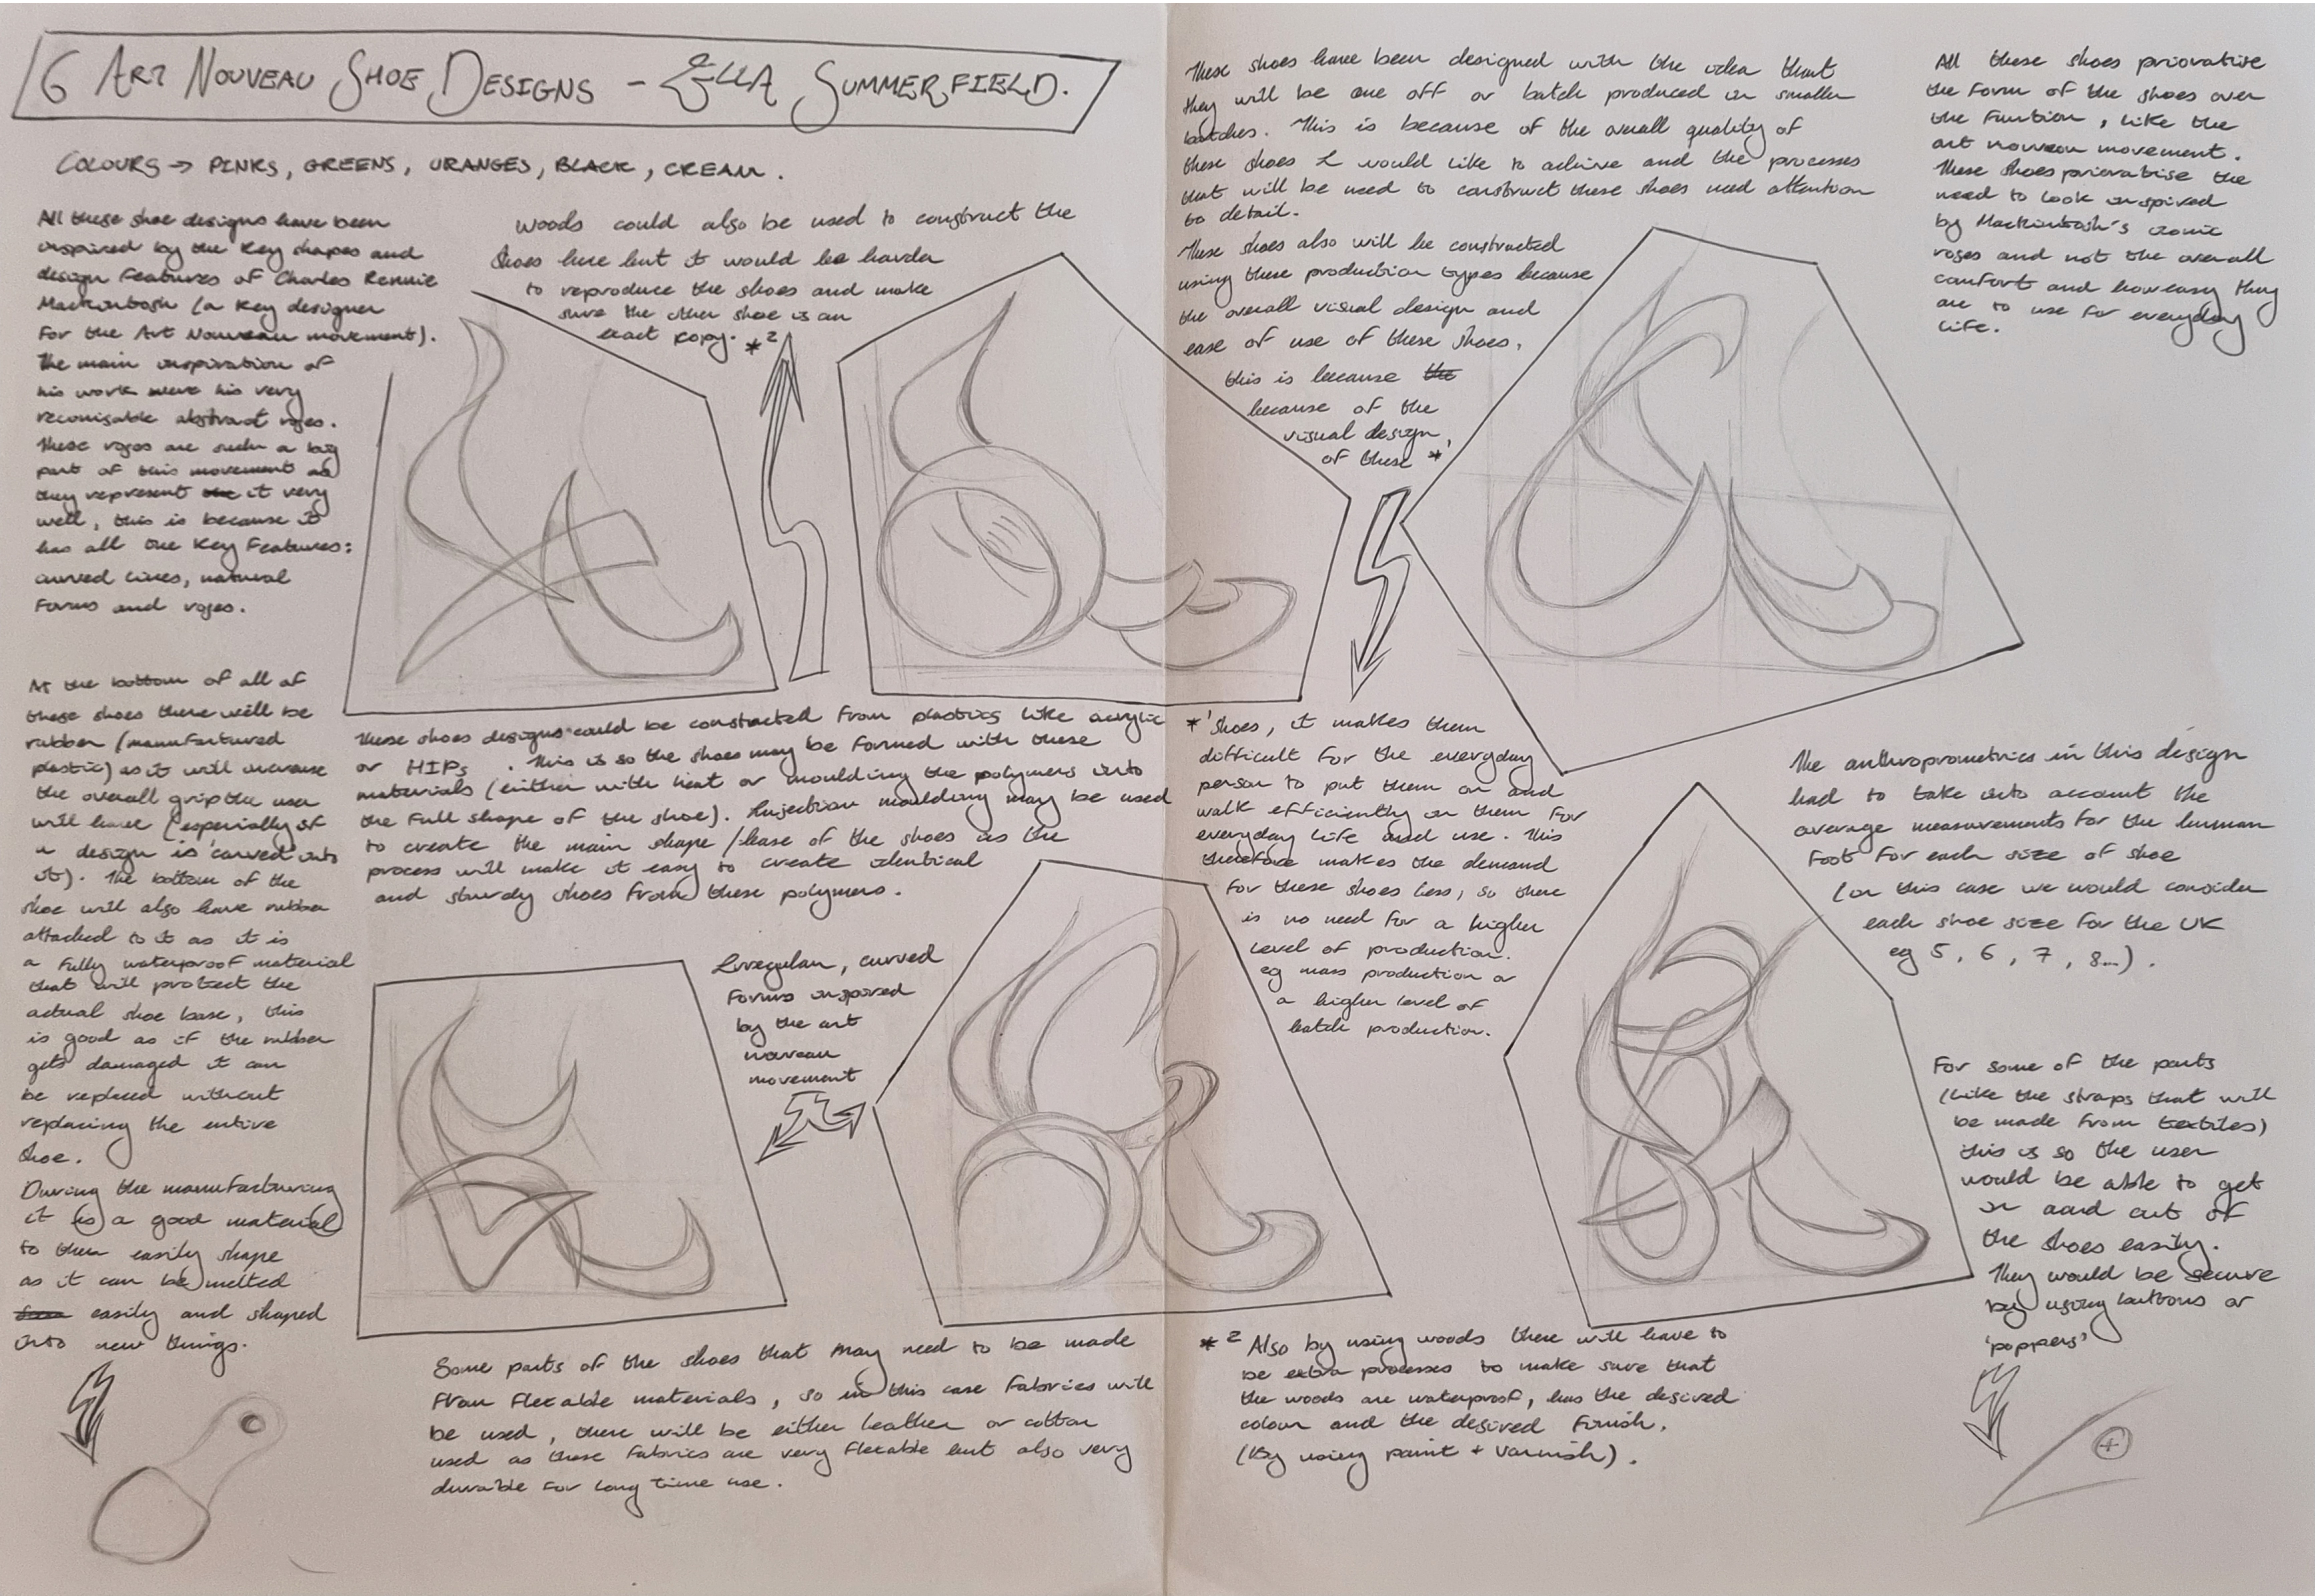 6 ART NOUVEAU SHOE DESIGNS - ELLA SUMMERFIELD.
COLOURS → PINKS, GREENS, ORANGES, BLACK, CREAM.
All these shoe designs have been
inspired by the key shapes and
design features of Charles Rennie
Mackintosh (a key designer
for the Art Nouveau movement).
The main inspiration of
his work were his very
reconisable abstract roses.
These roses are such a big
part of this movement as
they represent the it very
well, this is because it
has all the key features:
curved lines, natural
forms and roses.
At the bottom of all of
these shoes there will be
rubber (manufactured
plastic) as it will increase
the overall grip the user
will have (especially if
a design is carved into
it). The bottom of the
shoe will also have rubber
attached to it as it is
a fully waterproof material
that will protect the
actual shoe base, this
is good as if the rubber
gets damaged it can
be replaced without
replacing the entire
shoe.
During the manufacturing
it is a good material
to then easily shape
as it can be melted
easily and shaped
into new things.
Woods could also be used to construct the
shoes here but it would be harder
to reproduce the shoes and make
sure the other shoe is an
exact copy. *2
These shoes designs could be constructed from plastics like acrylic
or HIPs. This is so the shoes may be formed with these
materials (either with heat or moulding the polymers into
the full shape of the shoe). Injection moulding may be used
to create the main shape/base of the shoes as the
process will make it easy to create identical
and sturdy shoes from these polymers.
Irregular, curved
forms inspired
by the art
noveau
movement
Some parts of the shoes that may need to be made
from flexable materials, so in this case fabrics will
be used, there will be either leather or cotton
used as these fabrics are very flexable but also very
durable for long time use.
These shoes have been designed with the idea that
they will be one off or batch produced in smaller
batches. This is because of the overall quality of
these shoes I would like to achive and the processes
that will be need to construct these shoes need attention
to detail.
These shoes also will be constructed
using these production types because
the overall visual design and
ease of use of these shoes,
this is because the
because of the
visual design,
of these *
*1 Shoes, it makes them
difficult for the everyday
person to put them on and
walk efficiently in them for
everyday life and use. This
therefore makes the demand
for these shoes less, so there
is no need for a higher
level of production.
eg mass production or
a higher level of
batch production.
*2 Also by using woods there will have to
be extra processes to make sure that
the woods are waterproof, has the desired
colour and the desired finish.
(By using paint + varnish).
All these shoes priorative
the form of the shoes over
the funtion, like the
art nouveau movement.
These shoes prioratise the
need to look inspired
by Mackintosh's iconic
roses and not the overall
comfort and how easy they
are to use for everyday
life.
The anthropromětrics in this design
had to take into account the
average measurements for the human
foot for each size of shoe
(in this case we would consider
each shoe size for the UK
eg 5, 6, 7, 8...).
For some of the parts
(like the straps that will
be made from textiles)
this is so the user
would be able to get
in aand out of
the shoes easily.
They would be secure
by using buttons or
'poppers'